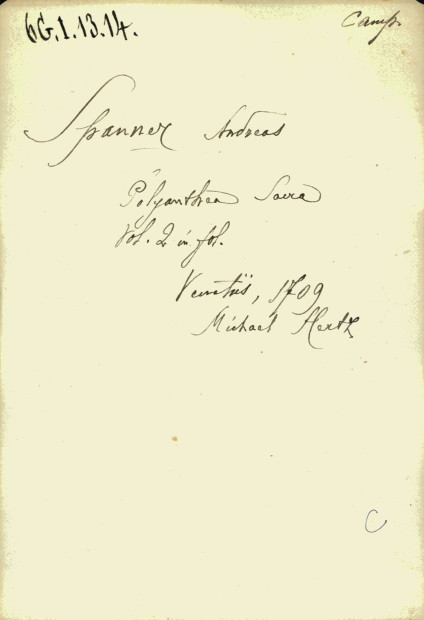 6G.1.13.14.
Camp.
Spanner Andreas
Polyanthea Sacra
Vol. 2 in fol.
Venetiis, 1709
Michael Hertz
C